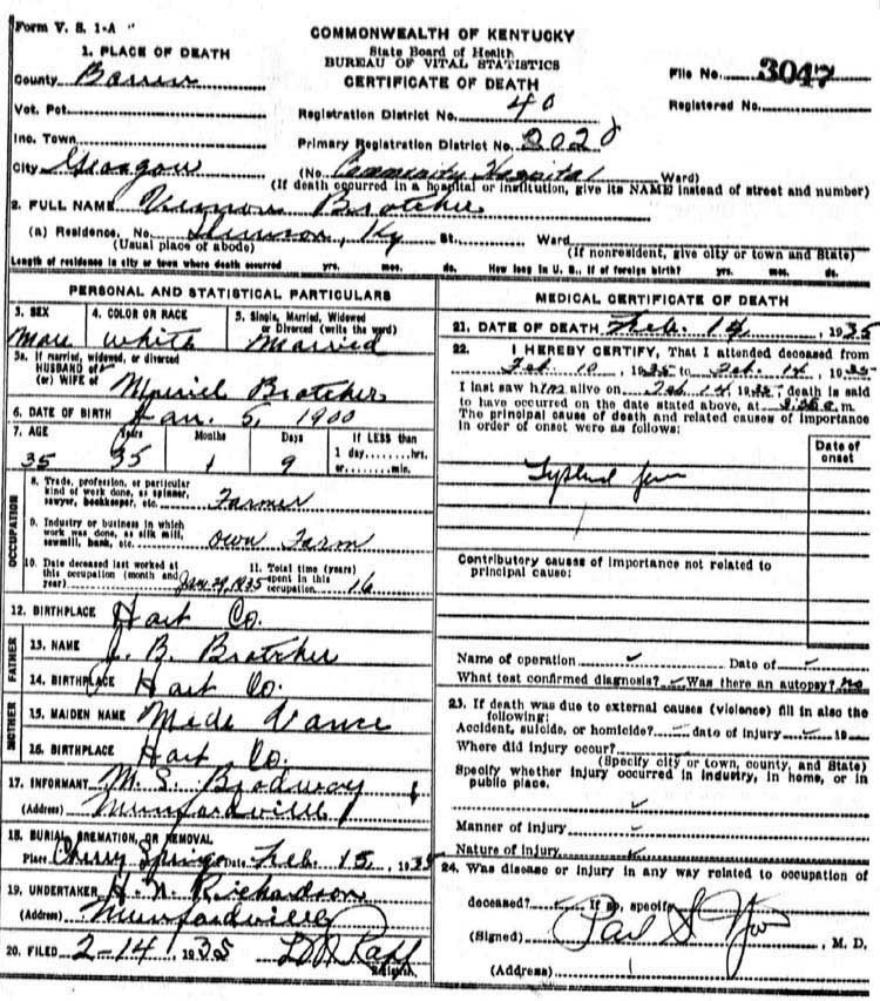 Form V. S. 1-A
COMMONWEALTH OF KENTUCKY
State Board of Health
BUREAU OF VITAL STATISTICS
CERTIFICATE OF DEATH
File No. 3047
Registered No.
1. PLACE OF DEATH
County Barren
Vot. Pct.
Inc. Town
City Glasgow
Registration District No. 40
Primary Registration District No. 2020
(No. Community Hospital Ward)
(If death occurred in a hospital or institution, give its NAME instead of street and number)
2. FULL NAME Vernon Bratcher
(a) Residence. No. Ky St. Ward
(Usual place of abode) (If nonresident, give city or town and State)
Length of residence in city or town where death occurred yrs. mos. ds. How long in U. S., if of foreign birth? yrs. mos. ds.
PERSONAL AND STATISTICAL PARTICULARS
3. SEX Male
4. COLOR OR RACE White
5. Single, Married, Widowed or Divorced (write the word) Married
5a. If married, widowed, or divorced
HUSBAND of
(or) WIFE of Bratcher
6. DATE OF BIRTH Jan. 5, 1900
7. AGE Years Months Days If LESS than
35 35 1 9 1 day hrs.
or min.
OCCUPATION
8. Trade, profession, or particular
kind of work done, as spinner,
sawyer, bookkeeper, etc. Farmer
9. Industry or business in which
work was done, as silk mill,
sawmill, bank, etc. Own Farm
10. Date deceased last worked at
this occupation (month and
year) Jan 29, 1935
11. Total time (years)
spent in this
occupation 16
12. BIRTHPLACE Hart Co.
FATHER
13. NAME J. B. Bratcher
14. BIRTHPLACE Hart Co.
MOTHER
15. MAIDEN NAME Vance
16. BIRTHPLACE Hart Co.
17. INFORMANT M. S. Brodway
(Address) Munfordville
18. BURIAL, CREMATION, OR REMOVAL
Place Cherry Springs Date Feb. 15, 1935
19. UNDERTAKER H. N. Richardson
(Address) Munfordville
20. FILED 2-14, 1935
MEDICAL CERTIFICATE OF DEATH
21. DATE OF DEATH Feb. 14, 1935
22. I HEREBY CERTIFY, That I attended deceased from
Feb. 10, 1935 to Feb. 14, 1935
I last saw him alive on Feb 14, 1935, death is said
to have occurred on the date stated above, at m.
The principal cause of death and related causes of importance
in order of onset were as follows:
Date of
onset
Typhoid
Contributory causes of importance not related to
principal cause:
Name of operation Date of
What test confirmed diagnosis? Was there an autopsy? No
23. If death was due to external causes (violence) fill in also the
following:
Accident, suicide, or homicide? date of injury 19
Where did injury occur?
(Specify city or town, county, and State)
Specify whether injury occurred in industry, in home, or in
public place.
Manner of injury
Nature of injury
24. Was disease or injury in any way related to occupation of
deceased? If so, specify
(Signed) Paul S. , M. D.
(Address)